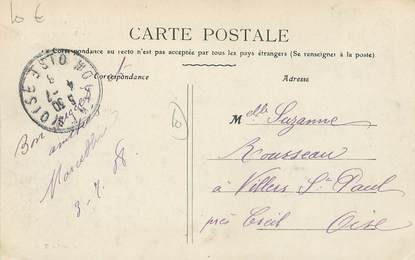 10 €
CARTE POSTALE
La Correspondance au recto n'est pas acceptée par tous les pays étrangers (Se renseigner à la poste)
Correspondance
Adresse
OISE
Bon
Marcelle
3-7.08
Melle Suzanne
Rousseau
à Villers St Paul
près Creil Oise